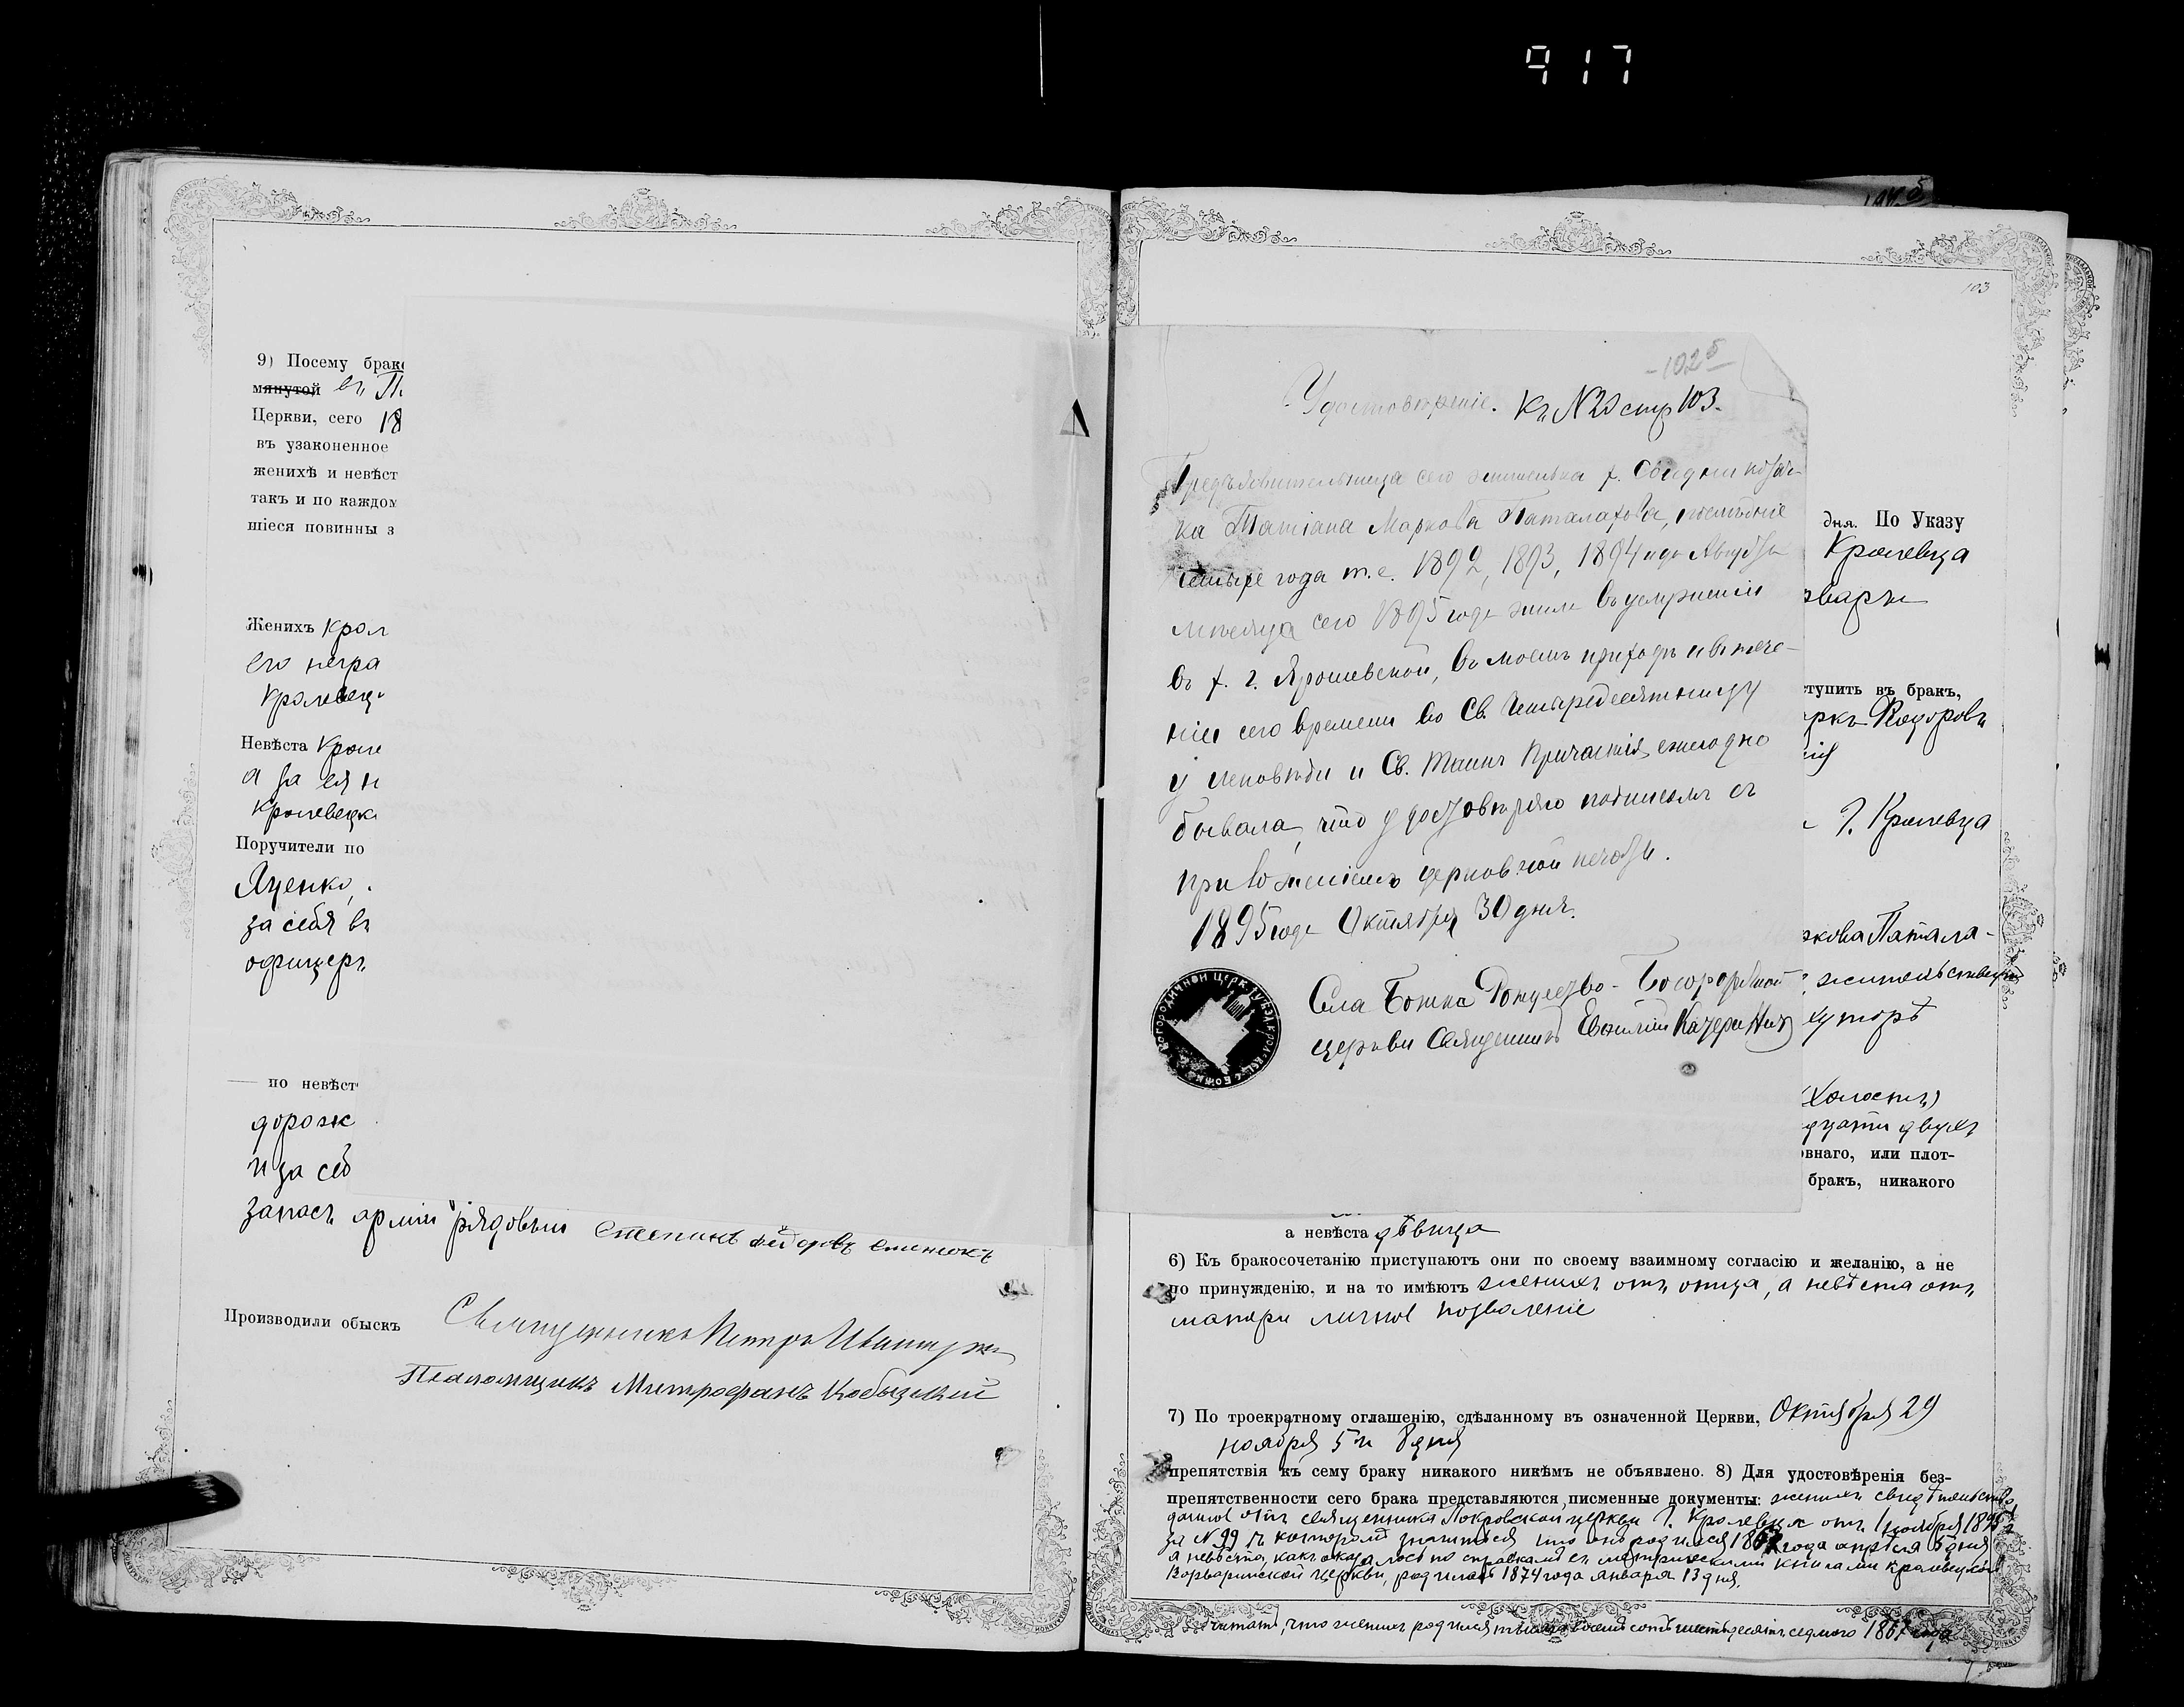 917
9) Посему брако
мянутой въ
Церкви, сего 18
въ узаконенное
женихѣ и невѣст
такъ и по каждом
шіеся повинны з
Женихъ Крол
его негра
Кролевец
Невѣста Кроле
а за ея н
Кролевецк
Поручители по
Яценко,
за себя въ
офицеръ
по невѣст
дорож
и за себ
запасъ арміи рядовый Степанъ Федоровъ
Производили обыскъ Священникъ Петръ
Псаломщикъ Митрофанъ Кобызскій
103
102 5
Удостовѣреніе. Къ № 20 стр 103.
Предъявительница сего жительница х. козач-
ка Татіана Маркова Паталахова, послѣдніе
четыре года т.е. 1892, 1893, 1894 и до Августа
мѣсяца сего 1895 года жила въ услуженіи
въ х. г. Ярошевской, въ моемъ приходѣ и въ тече-
ніи сего времени во Св. Четыредесятницу
у исповѣди и Св. Таинъ Причастія ежегодно
бывала, что удостовѣряю подписомъ съ
приложеніемъ церковной печати.
1895 года Октября 30 дня.
Села Божка Рождество-Богородичной
церкви Священникъ Евфимій
дня. По Указу
Кролевца
ступить въ бракъ,
Ѳедоровъ
г. Кролевца
ркова Патала-
жительствующ
хуторѣ
(Холостъ)
дцати двухъ
овнаго, или плот-
бракъ, никакого
а невѣста дѣвица
6) Къ бракосочетанію приступаютъ они по своему взаимному согласію и желанію, а не
по принужденію, и на то имѣютъ женихъ отъ отца, а невѣста отъ
матери личное позволеніе
7) По троекратному оглашенію, сдѣланному въ означенной Церкви, Октября 29
ноября 5 и 8 дня
препятствія къ сему браку никакого никѣмъ не объявлено. 8) Для удостовѣренія без-
препятственности сего брака представляются письменные документы: женихъ свидѣтельство
данное отъ священника Покровской церкви г. Кролевца отъ 1 ноября 1895 г.
за № 99 въ которомъ значится что онъ родился 1867 года апрѣля 5 дня
а невѣста, какъ оказалось по справкамъ съ метрическими книгами Кролевецкой
Варваринской церкви, родилась 1874 года января 13 дня.
читать, что женихъ родился тысяча восемь сотъ шестьдесятъ седьмого 1867 года